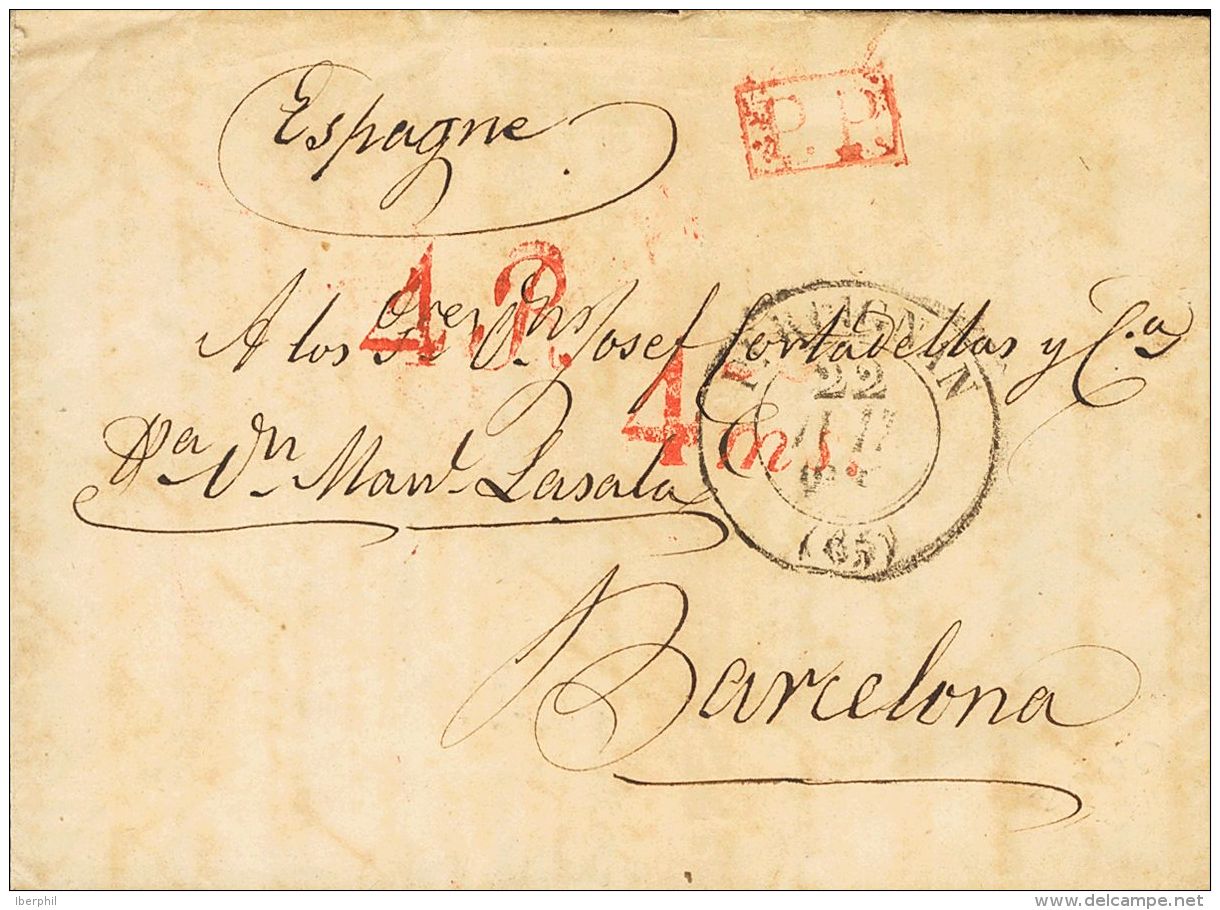 Espagne
P.P.
4 R.
A los Sres. Dn. Josef Cortadellas y Ca.
4 ms.
PERPIGNAN
22
(65)
Pa. Dn. Manl. Lasala
Barcelona
Iberphil
delcampe.net